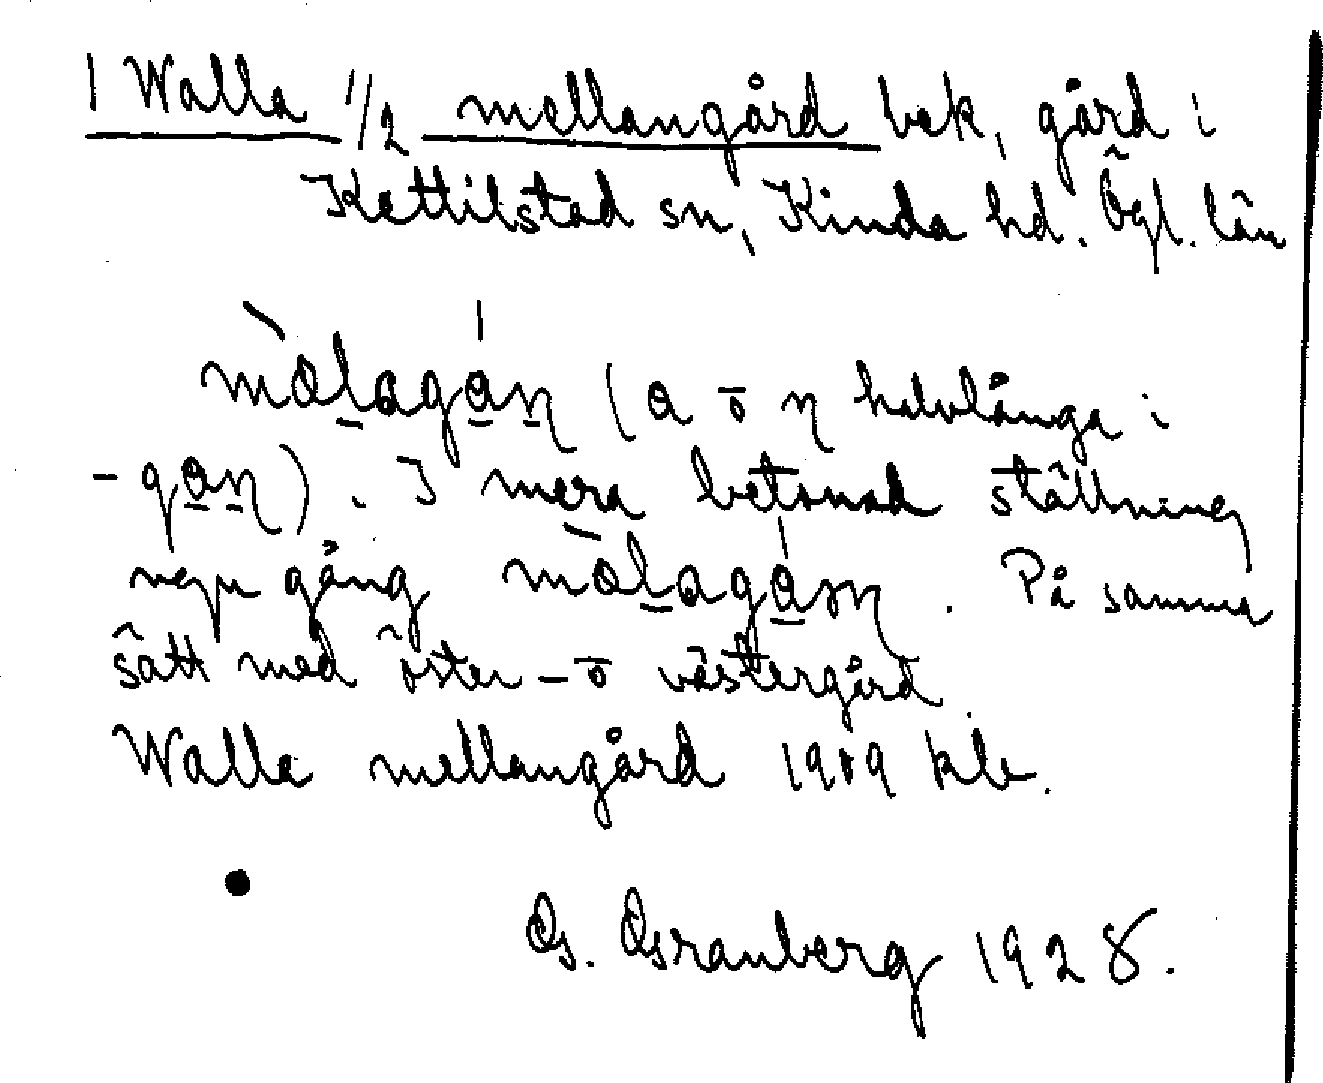 1 Walla 1/2 mellangård bek, gård i
Kettilstad sn, Kinda hd. Ögl. län
mòlagán (a o n halvlånga i
-gan). I mera betonad ställning
ngn gång mòlagán. På samma
sätt med öster- o västergård.
Walla mellangård 1909 kb.
G. Granberg 1928.